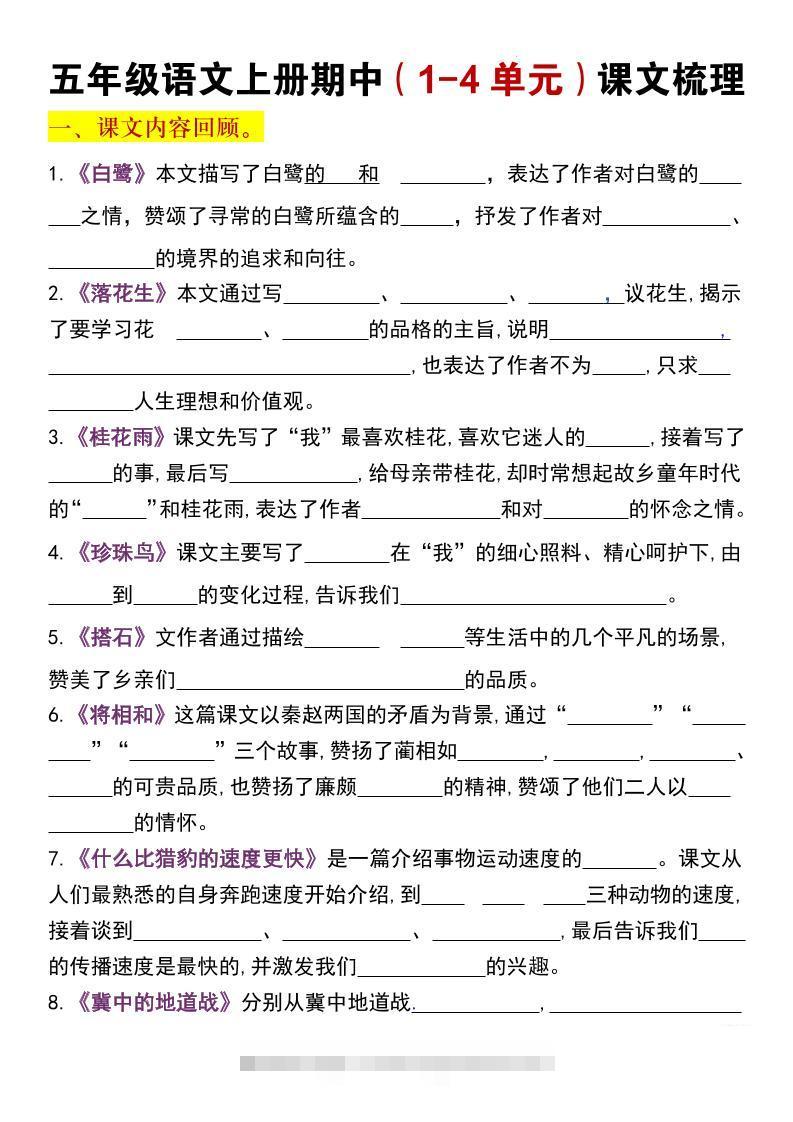 五年级语文上册期中（1-4 单元）课文梳理
一、课文内容回顾。
1.《白鹭》本文描写了白鹭的___和 ________，表达了作者对白鹭的____
___之情，赞颂了寻常的白鹭所蕴含的_____，抒发了作者对____________、
__________的境界的追求和向往。
2.《落花生》本文通过写_________、__________、_______，_议花生,揭示
了要学习花 ________、________的品格的主旨,说明________________,
__________________________________,也表达了作者不为_____,只求___
________人生理想和价值观。
3.《桂花雨》课文先写了“我”最喜欢桂花,喜欢它迷人的______,接着写了
______的事,最后写____________,给母亲带桂花,却时常想起故乡童年时代
的“______”和桂花雨,表达了作者_____________和对________的怀念之情。
4.《珍珠鸟》课文主要写了________在“我”的细心照料、精心呵护下,由
______到______的变化过程,告诉我们_________________________。
5.《搭石》文作者通过描绘_______ ______等生活中的几个平凡的场景,
赞美了乡亲们___________________________的品质。
6.《将相和》这篇课文以秦赵两国的矛盾为背景,通过“________”“_____
____”“________”三个故事,赞扬了蔺相如________,________,________、
______的可贵品质,也赞扬了廉颇________的精神,赞颂了他们二人以____
________的情怀。
7.《什么比猎豹的速度更快》是一篇介绍事物运动速度的_______。课文从
人们最熟悉的自身奔跑速度开始介绍,到____ ____ ____三种动物的速度,
接着谈到____________、____________、____________,最后告诉我们____
的传播速度是最快的,并激发我们____________的兴趣。
8.《冀中的地道战》分别从冀中地道战.____________,__________________